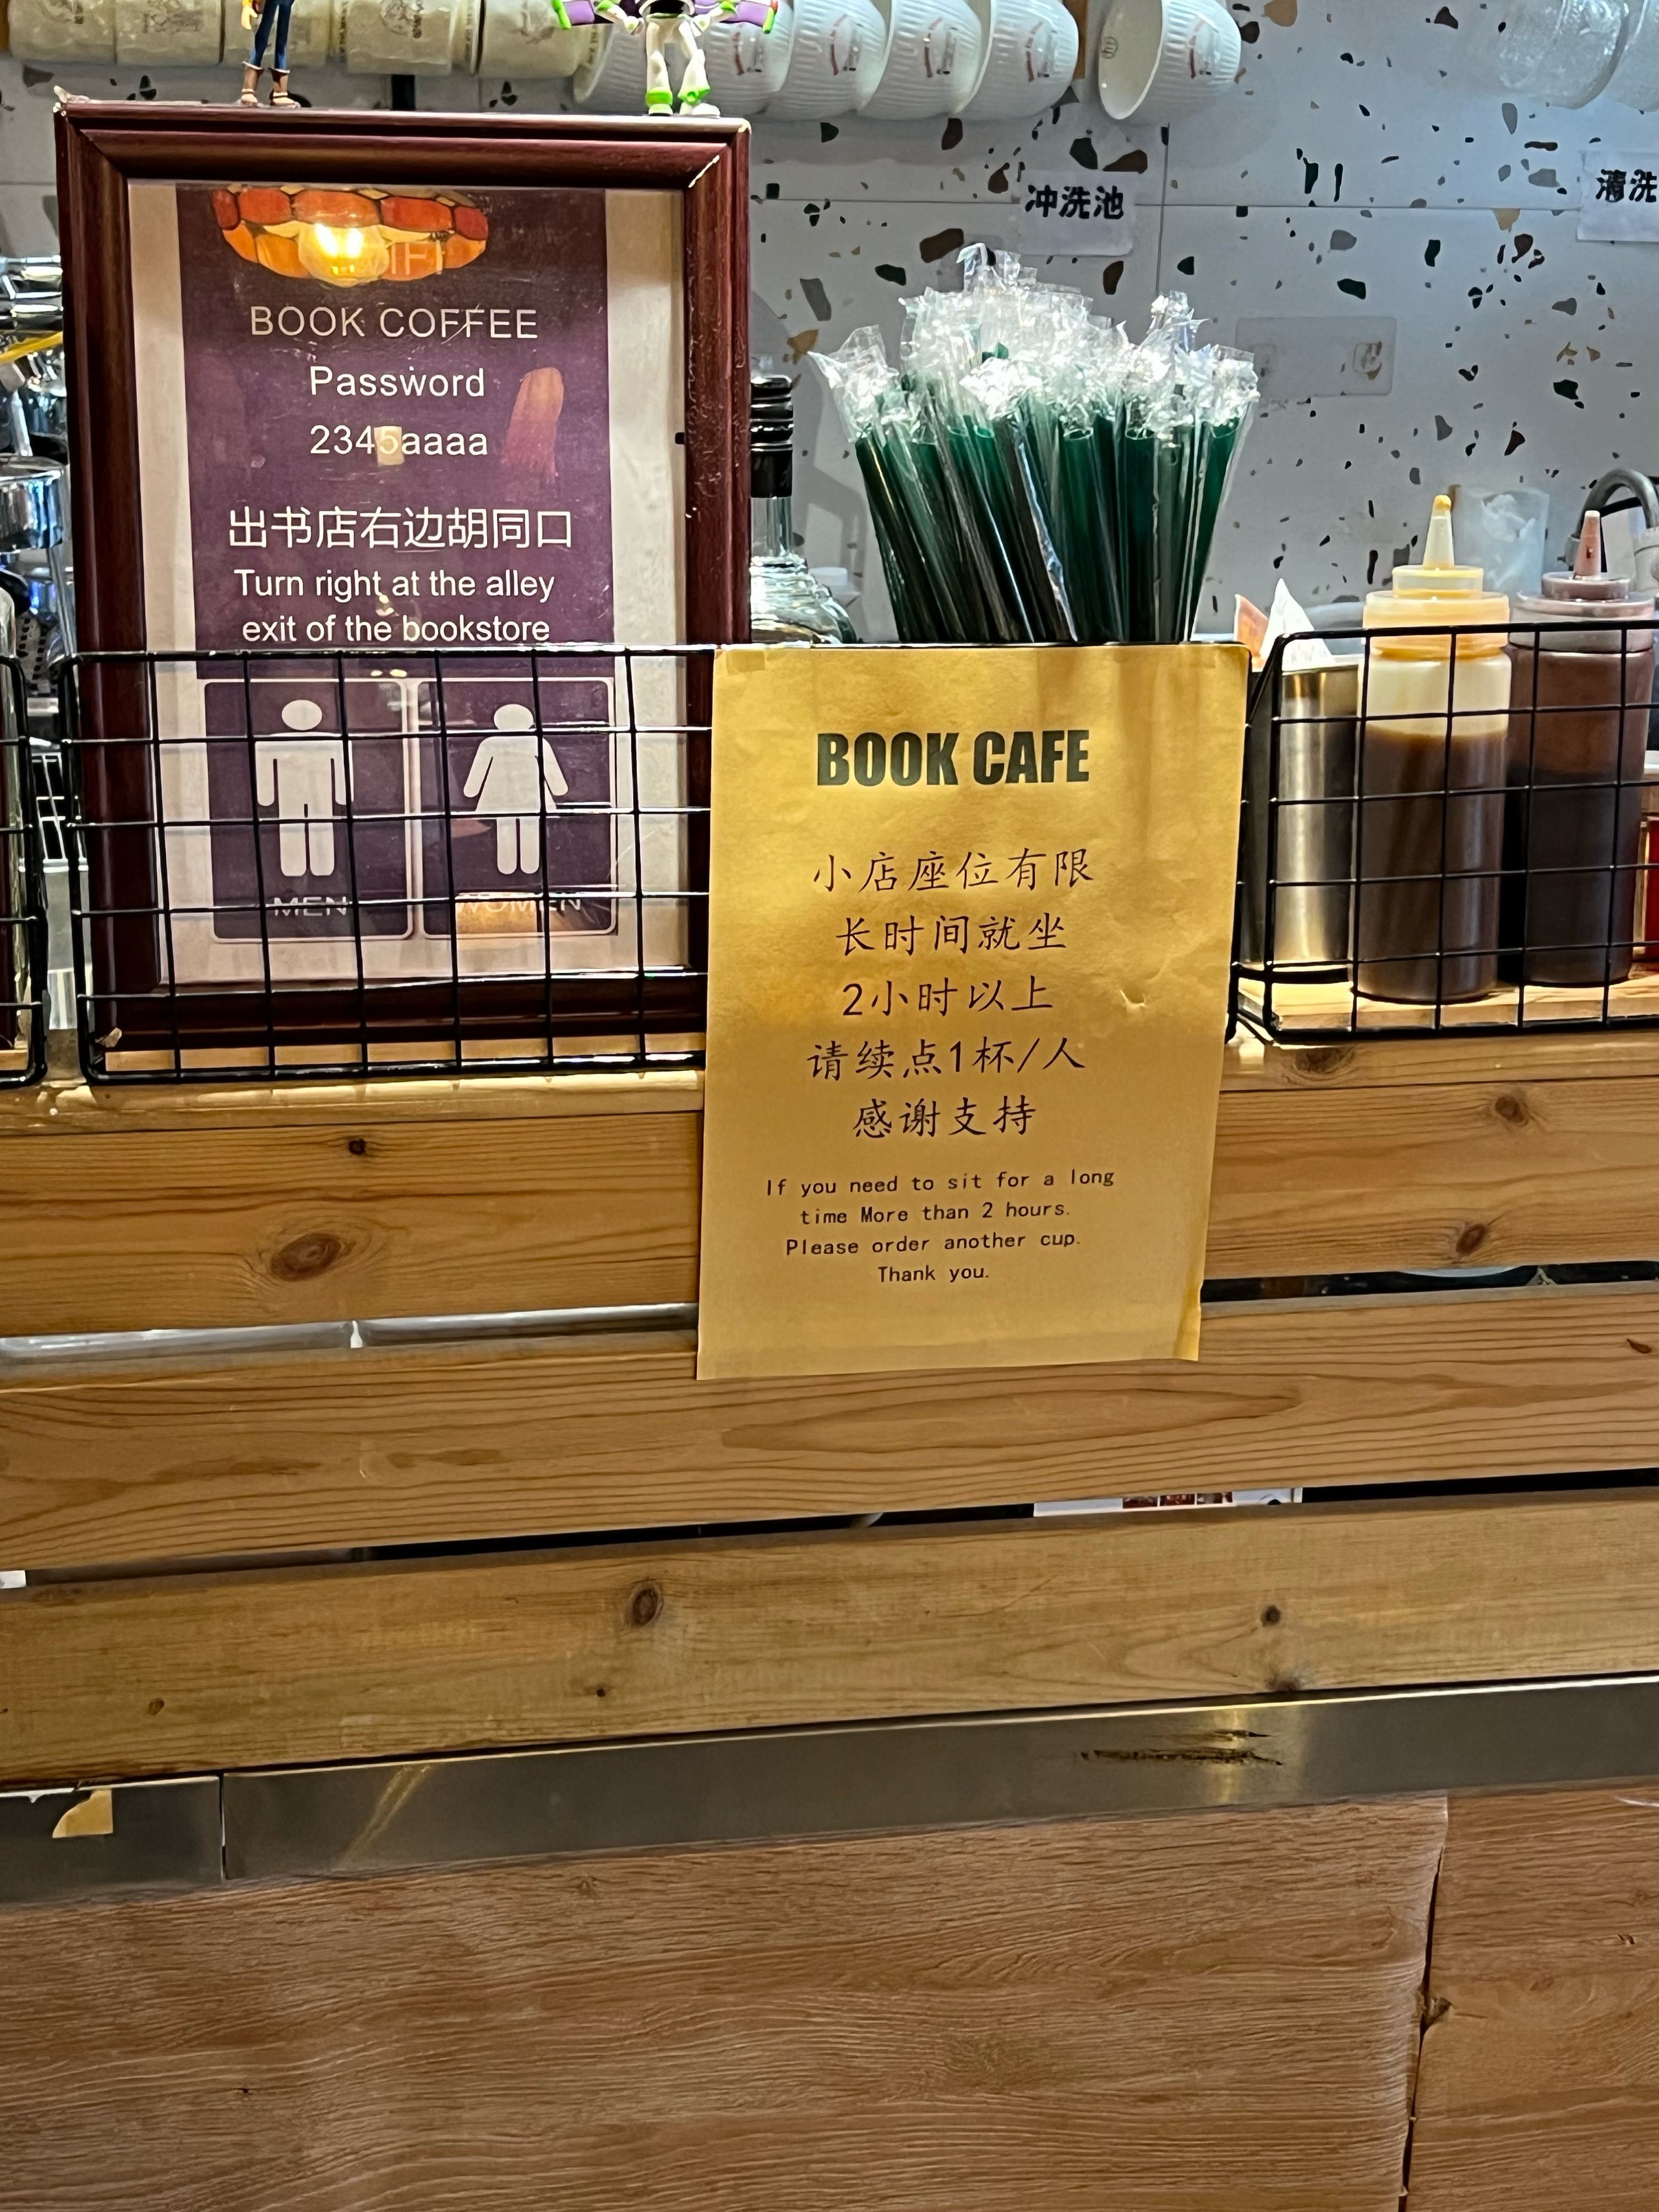 冲洗池
清洗
BOOK COFFEE
Password
2345aaaa
出书店右边胡同口
Turn right at the alley
exit of the bookstore
MEN
WOMEN
BOOK CAFE
小店座位有限
长时间就坐
2小时以上
请续点1杯/人
感谢支持
If you need to sit for a long
time More than 2 hours.
Please order another cup.
Thank you.